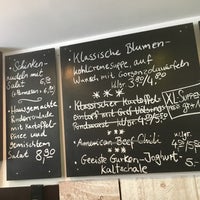 Schinken-
nudeln mit
Salat 6.-
Hausgemachte
Rinderroulade
mit Kartoffel
Püree und
gemischtem
Salat 8,90
Klassische Blumen-
kohlcremesuppe, auf
Wunsch mit Gorgonzolawürfeln
klgr. 3.90/4.80
Klassischer Kartoffel
Eintopf mit
klgr. 4.90/5.50
XL Suppe
American Beef-Chili
klgr.
Geeiste Gurken-Joghurt-
Kaltschale 5.-